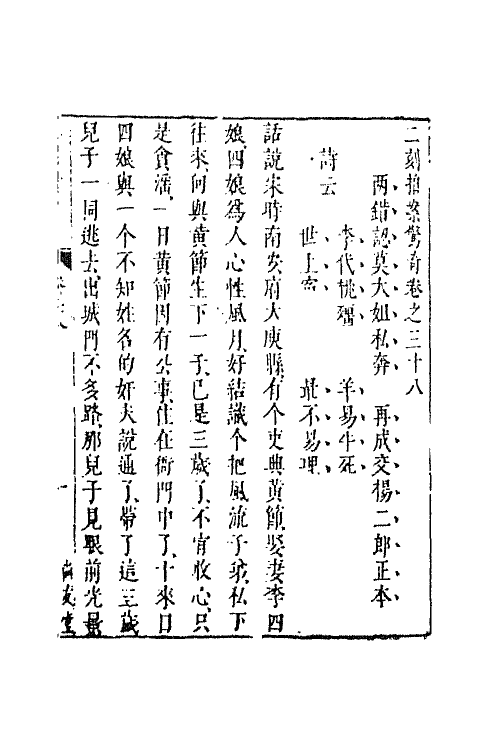 二刻拍案驚奇卷之三十八
兩錯認莫大姐私奔　再成交楊二郎正本
詩云
李代桃殭　羊易牛死
世上冤　最不易理
話說宋時南安府大庾縣有个吏典黃節娶妻李四
娘四娘爲人心性風月好結識个把風流子弟私下
往來向與黃節生下一子已是三歲了不肯收心只
是貪滛一日黃節因有公事住在衙門中了十來日
四娘與一个不知姓名的奸夫說通了帶了這三歲
兒子一同逃去出城門不多路那兒子見眼前光景
一
尚友堂